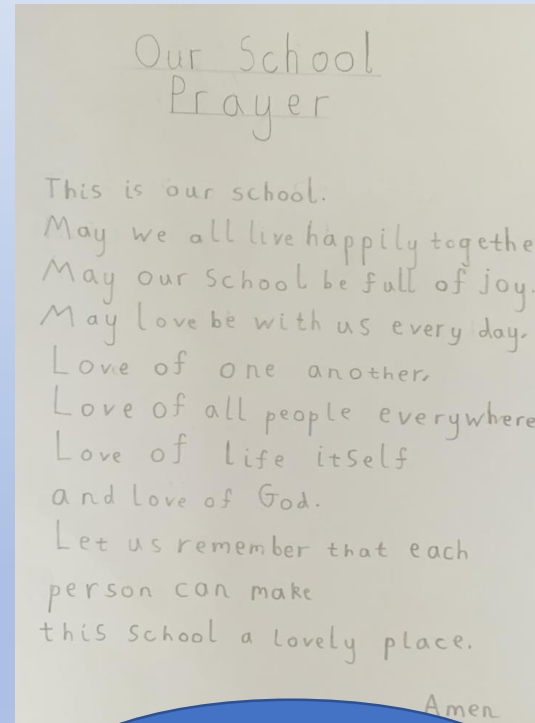 Our School
Prayer
This is our school.
May we all live happily togethe
May our school be full of joy.
May love be with us every day.
Love of one another,
Love of all people everywhere
Love of life itself
and love of God.
Let us remember that each
person can make
this school a lovely place.
Amen